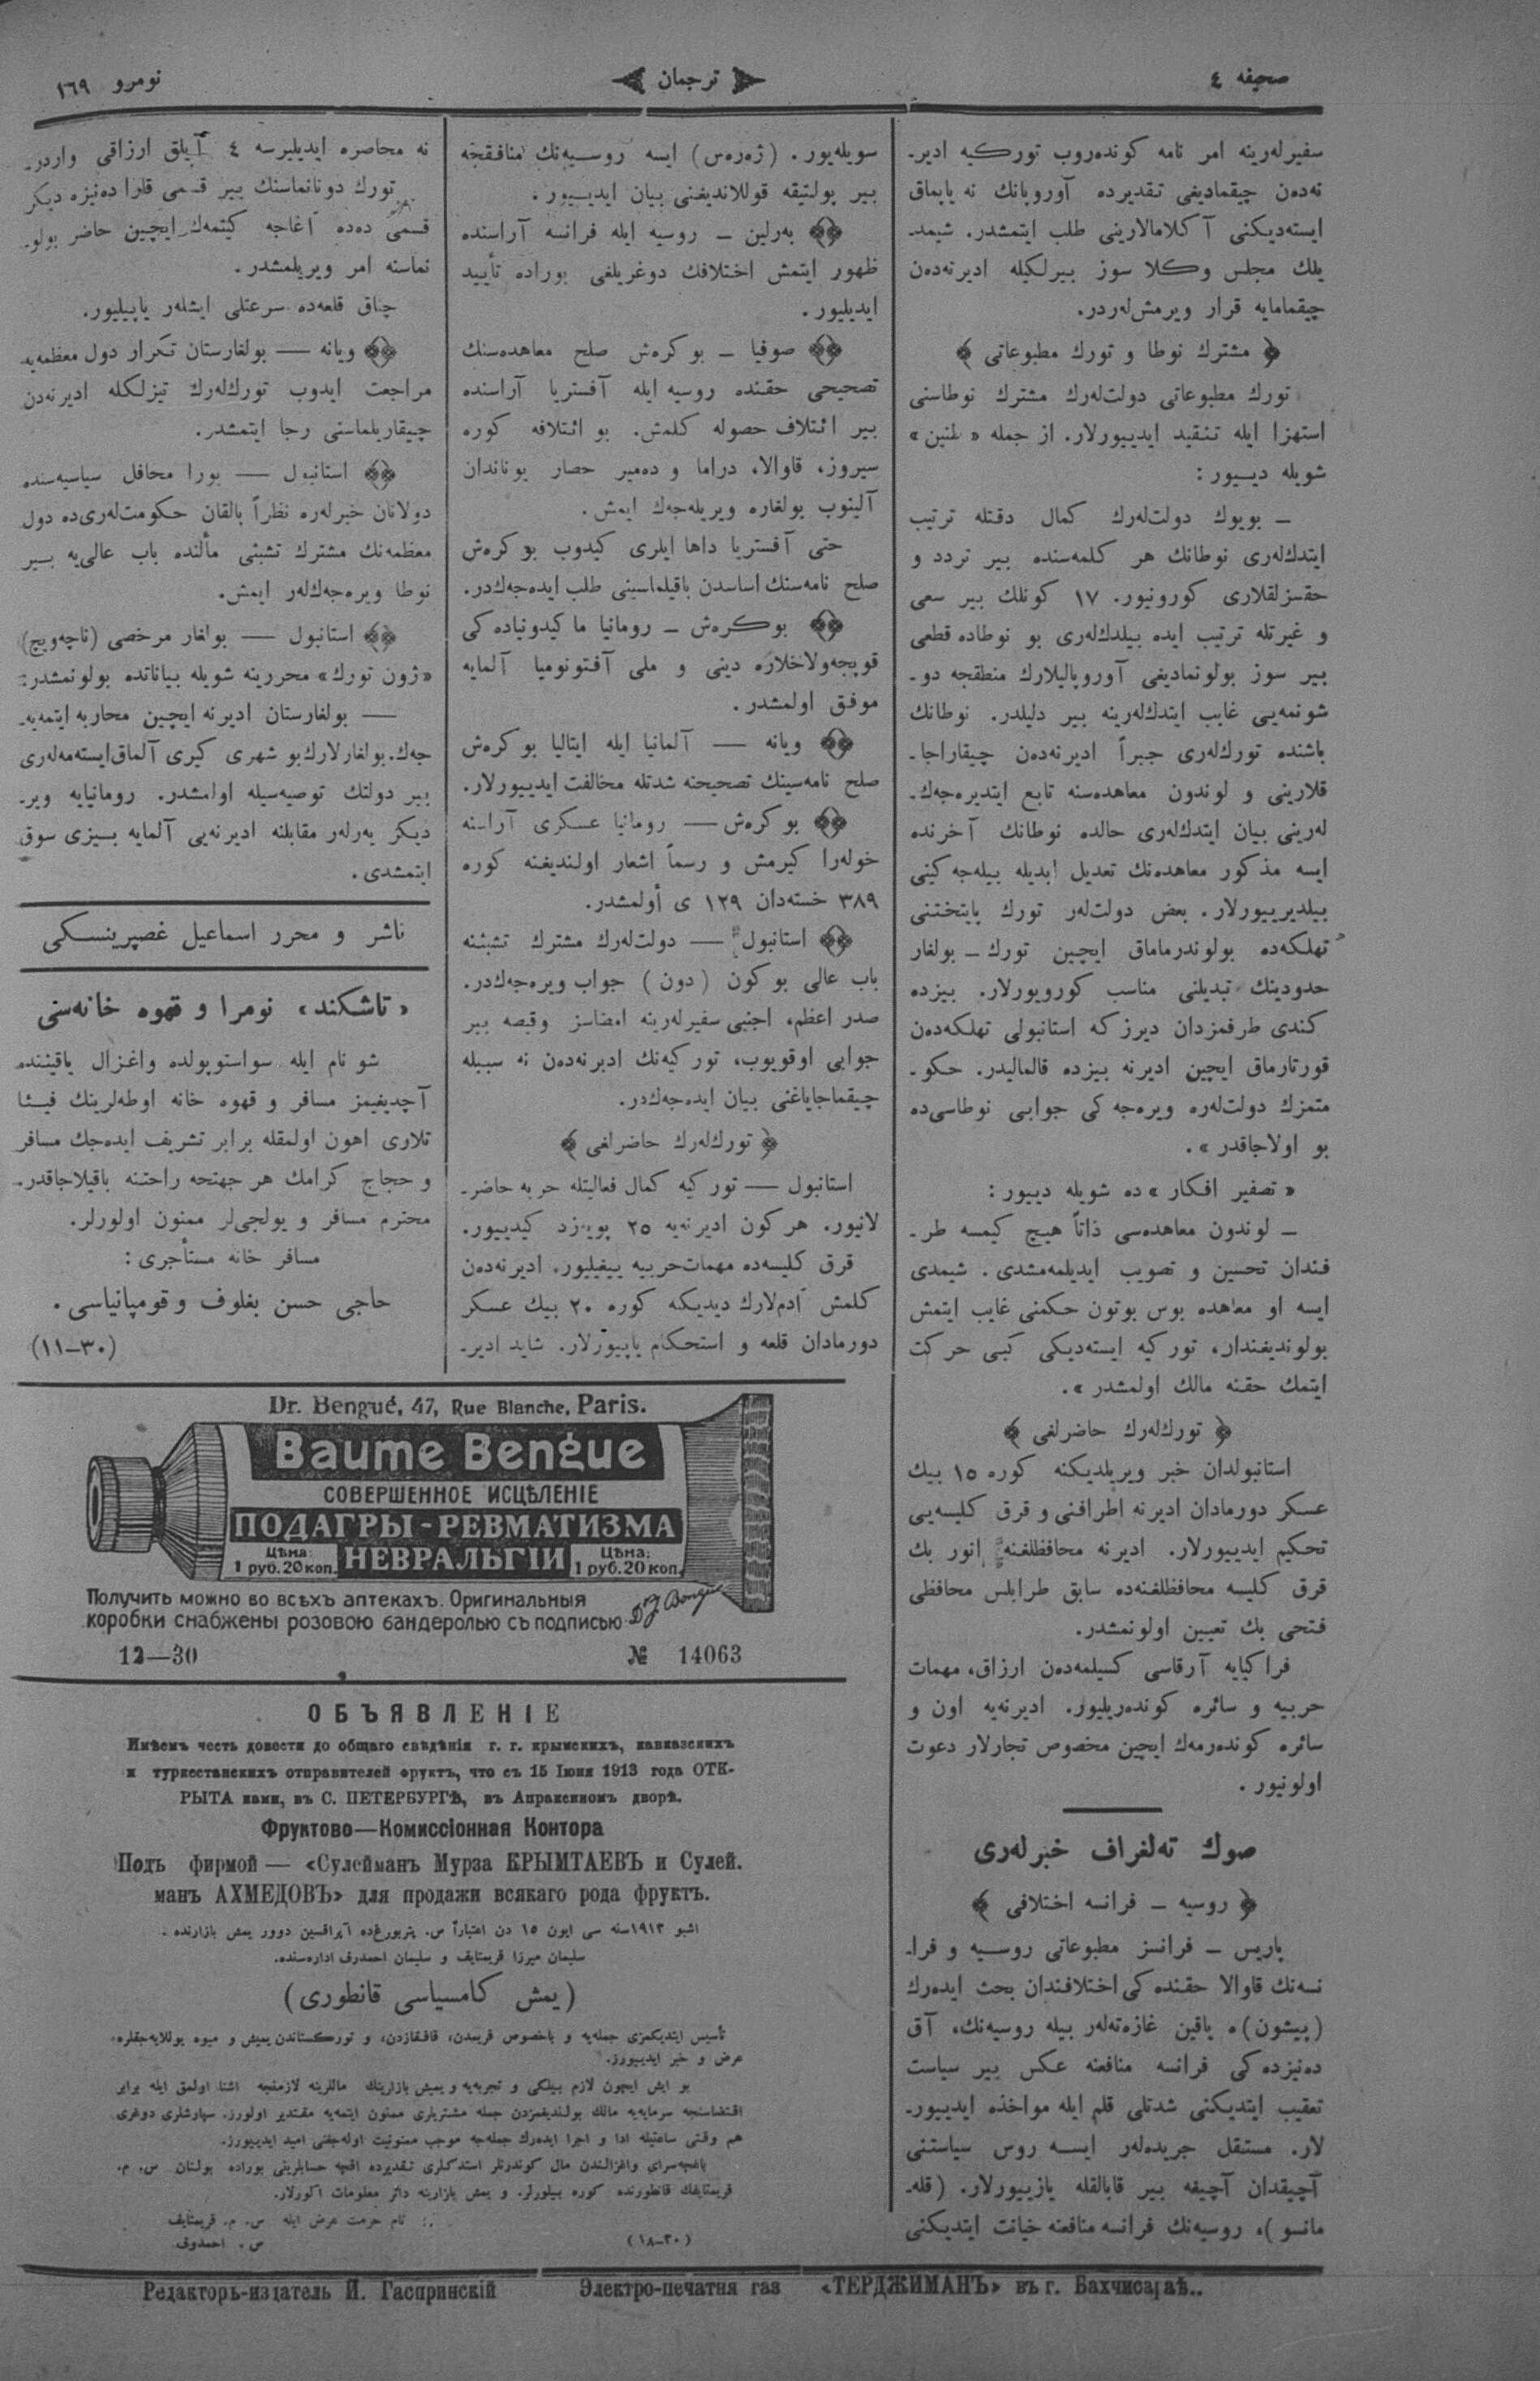 صحیفه ٤
ترجمان
نومرو ١٦٩
سفیرلەرینە امر نامه کوندەروب تورکیه ادیر-
نەدەن چیقمادیغی تقدیرده آوروپانك نه یاپماق
ایستەدیکنی آکلامالارینی طلب ایتمشدر. شیمد-
یلك مجلس وکلا سوز بیرلکیله ادیرنەدەن
چیقمامایه قرار ویرمش‌لەردر.
﴿ مشترك نوطا و تورك مطبوعاتی ﴾
تورك مطبوعاتی دولت‌لەرك مشترك نوطاسنی
استهزا ایله تنقید ایدییورلار. از جمله « طنین »
شویله دییور :
ـ بویوك دولت‌لەرك کمال دقتله ترتیب
ایتدك‌لەری نوطانك هر کلمەسنده بیر تردد و
حقسزلقلاری کورونیور. ١٧ کونلك بیر سعی
و غیرتله ترتیب ایده بیلدك‌لەری بو نوطاده قطعی
بیر سوز بولونمادیغی آوروپالیلارك منطقجه دو-
شونمەیی غایب ایتدك‌لەرینه بیر دلیلدر. نوطانك
باشنده تورك‌لەری جبراً ادیرنەدەن چیقاراجا-
قلارینی و لوندون معاهدەسنه تابع ایتدیرەجەك-
لەرینی بیان ایتدك‌لەری حالده نوطانك آخرنده
ایسه مذکور معاهدەنك تعدیل ایدیله بیلەجەکینی
بیلدیرییورلار. بعض دولت‌لەر تورك پایتختنی
تهلکەده بولوندرماماق ایچین تورك ـ بولغار
حدودینك تبدیلنی مناسب کورویورلار. بیزده
کندی طرفمزدان دیرزکه استانبولی تهلکەدەن
قورتارماق ایچین ادیرنه بیزده قالمالیدر. حکو-
متمزك دولت‌لەره ویرەجەکی جوابی نوطاسی‌ده
بو اولاجاقدر ».
« تصفیر افکار »ده شویله دییور :
ـ لوندون معاهدەسی ذاتاً هیچ کیمسه طر-
فندان تحسین و تصویب ایدیلمەمشدی. شیمدی
ایسه او معاهده بوس بوتون حکمنی غایب ایتمش
بولوندیغندان، تورکیه ایستەدیکی کبی حرکت
ایتمك حقنه مالك اولمشدر ».
﴿ تورك‌لەرك حاضرلغی ﴾
استانبولدان خبر ویریلدیکنه کوره ١٥ بیك
عسکر دورمادان ادیرنه اطرافنی و قرق کلیسەیی
تحکیم ایدییورلار. ادیرنه محافظلغنه انور بك
قرق کلیسه محافظلغنەده سابق طرابلس محافظی
فتحی بك تعیین اولونمشدر.
فراکیایه آرقاسی کسیلمەدەن ارزاق، مهمات
حربیه و سائره کوندەریلیور. ادیرنەیه اون و
سائره کوندەرمەك ایچین مخصوص تجارلار دعوت
اولونیور.
صوك تەلغراف خبرلەری
﴿ روسیه ـ فرانسه اختلافی ﴾
پاریس ـ فرانسز مطبوعاتی روسیه و فرا-
نسەنك قاوالا حقنده‌کی اختلافندان بحث ایدەرك
(پیشون)ه یاقین غازەتەلەر بیله روسیەنك، آق
دەنیزدەکی فرانسه منافعنه عکس بیر سیاست
تعقیب ایتدیکنی شدتلی قلم ایله مواخذه ایدییور-
لار. مستقل جریدەلەر ایسه روس سیاستنی
آچیقدان آچیغه بیر قابالقله یازییورلار. (قله-
مانسو)، روسیەنك فرانسه منافعنه خیانت ایتدیکنی
سویلەیور. (ژەرەس) ایسه روسیەنك منافقجه
بیر پولتیقه قوللاندیغنی بیان ایدییور.
بەرلین ـ روسیه ایله فرانسه آراسنده
ظهور ایتمش اختلافك دوغریلغی بوراده تأیید
ایدیلیور.
صوفیا ـ بوکرەش صلح معاهدەسنك
تصحیحی حقنده روسیه ایله آفستریا آراسنده
بیر ائتلاف حصوله کلمش. بو ائتلافه کوره
سیروز، قاوالا، دراما و دەمیر حصار یوناندان
آلینوب بولغاره ویریلەجەك ایمش.
حتی آفستریا داها ایلری کیدوب بوکرەش
صلح نامەسنك اساسدن باقیلماسینی طلب ایدەجەك‌در.
بوکرەش ـ رومانیا ماکیدونیادەکی
قوپجەولاخلاره دینی و ملی آفتونومیا آلمایه
موفق اولمشدر.
ویانه — آلمانیا ایله ایتالیا بوکرەش
صلح نامەسینك تصحیحنه شدتله مخالفت ایدییورلار.
بوکرەش — رومانیا عسکری آراسنه
خولەرا کیرمش و رسماً اشعار اولندیغنه کوره
٣٨٩ خستەدان ١٢٩ ی أولمشدر.
استانبول — دولت‌لەرك مشترك تشبثنه
باب عالی بوکون (دون) جواب ویرەجەك‌در.
صدر اعظم، اجنبی سفیرلەرینه امضاسز وقیصه بیر
جوابی اوقویوب، تورکیەنك ادیرنەدەن نه سببله
چیقماجایاغنی بیان ایدەجەك‌در.
﴿ تورك‌لەرك حاضرلغی ﴾
استانبول — تورکیه کمال فعالیتله حربه حاضر-
لانیور. هرکون ادیرنەیه ٢٥ پویەزد کیدییور.
قرق کلیسەده مهمات‌حربیه ییغیلیور. ادیرنەدەن
کلمش آدم‌لارك دیدیکه کوره ٢٠ بیك عسکر
دورمادان قلعه و استحکام یاپیورلار. شاید ادیر-
نه محاصره ایدیلیرسه ٤ آیلق ارزاقی واردر.
تورك دونانماسنك بیر قسمی قارا دەنیزه دیکر
قسمی دەده آغاجه کیتمەك ایچین حاضر بولو-
نماسنه امر ویریلمشدر.
چناق قلعەده سرعتلی ایشلەر یاپیلیور.
ویانه — بولغارستان تکرار دول معظمەیه
مراجعت ایدوب تورك‌لەرك تیزلکله ادیرنەدن
چیقاریلماسنی رجا ایتمشدر.
استانبول — بورا محافل سیاسیەسنده
دولانان خبرلەره نظراً بالقان حکومت‌لەری‌ده دول
معظمەنك مشترك تشبثی مألنده باب عالی‌یه بیر
نوطا ویرەجەك‌لەر ایمش.
استانبول — بولغار مرخصی (ناچەویچ)
«ژون تورك» محررینه شویله بیاناتده بولونمشدر:
— بولغارستان ادیرنه ایچین محاربه ایتمەیە-
جەك. بولغارلارك‌بو شهری کیری آلماق‌ایستەمەلەری
بیر دولتك توصیەسیله اولمشدر. رومانیایه ویر-
دیکر یەرلەر مقابلنه ادیرنەیی آلمایه بیزی سوق
ایتمشدی.
ناشر و محرر اسماعیل غصپرینسکی
«تاشکند» نومرا و قهوه خانەسی
شو نام ایله سواستوپولده واغزال یاقیننده
آچدیغیمز مسافر و قهوه خانه اوطەلرینك فیئا
تلاری اهون اولمقله برابر تشریف ایدەجك مسافر
و حجاج کرامك هر جهتجه راحتنه باقیلاجاقدر.
محترم مسافر و یولجی‌لر ممنون اولورلر.
مسافر خانه مستأجری :
حاجی حسن بغلوف و قومپانیاسی.
(٣٠–١١)
Dr. Bengué, 47, Rue Blanche, Paris.
Baume Bengue
СОВЕРШЕННОЕ ИСЦѢЛЕНІЕ
ПОДАГРЫ-РЕВМАТИЗМА
Цѣна: 1 руб. 20 коп. НЕВРАЛЬГІИ Цѣна: 1 руб. 20 коп.
Получить можно во всѣхъ аптекахъ. Оригинальныя
коробки снабжены розовою бандеролью съ подписью Dr Bengué
12—30 № 14063
ОБЪЯВЛЕНІЕ
Имѣемъ честь довести до общаго свѣдѣнія г. г. крымскихъ, кавказскихъ
и туркестанскихъ отправителей фруктъ, что съ 15 Іюня 1913 года ОТК-
РЫТА нами, въ С. ПЕТЕРБУРГѢ, въ Апраксиномъ дворѣ.
Фруктово—Комиссіонная Контора
Подъ фирмой — «Сулейманъ Мурза КРЫМТАЕВЪ и Сулей.
манъ АХМЕДОВЪ» для продажи всякаго рода фруктъ.
اشبو ١٩١٣سنه سی ایون ١٥ دن اعتباراً س. پتربورغ‌ده آپراقسین دوور یمش بازارنده.
سلیمان میرزا قریمتایف و سلیمان احمدوف ادارەسنده.
(یمش کامسیاسی قانطوری)
تأسیس ایتدیکمزی جملەیه و باخصوص قریمدن، قافقازدن، و تورکستاندن یمیش و میوه یوللایەجقلره،
عرض و خبر ایدییورز.
بو ایش ایچون لازم بیلکی و تجربەیه و یمیش بازارینك ماللرینه لازمنجه اشنا اولمق ایله برابر
اقتضاسنجه سرمایەیه مالك بولندیغمزدن جمله مشتریلری ممنون ایتمەیه مقتدیر اولورز. سپارشلری دوغری
هم وقتی ساعتیله ادا و اجرا ایدەرك جملەجه موجب ممنونیت اولەجغنی امید ایدییورز.
باغچەسرای واغزالندن مال کوندرنلر استدکلری تقدیرده اقچه حسابلرینی بوراده بولنان س. م.
قریمتایفك قانطورنده کوره بیلورلر. و یمش بازارینه دائر معلومات آلورلار.
تام حرمت عرض ایله س. م. قریمتایف
س. احمدوف
(٣٠–١٨)
Редакторъ-издатель И. Гаспринскій Электро-печатня газ «ТЕРДЖИМАНЪ» въ г. Бахчисараѣ..